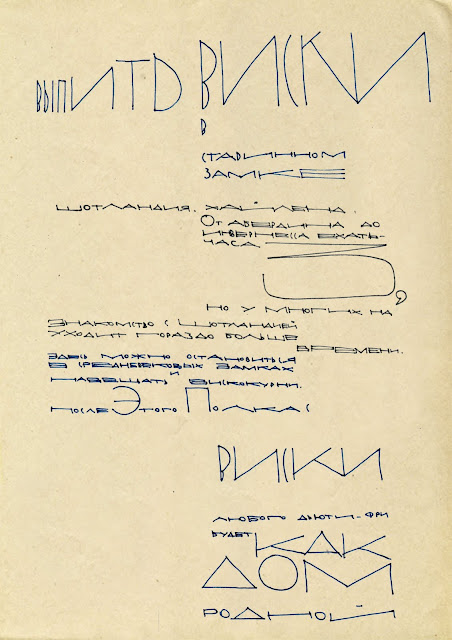 ВЫПИТЬ ВИСКИ
В
СТАРИННОМ
ЗАМКЕ
ШОТЛАНДИЯ. ХАЙЛЕНД.
ОТ АБЕРДИНА ДО
ИНВЕРНЕССА ЕХАТЬ-
ЧАСА
3,
НО У МНОГИХ НА
ЗНАКОМСТВО С ШОТЛАНДИЕЙ
УХОДИТ ГОРАЗДО БОЛЬШЕ
ВРЕМЕНИ.
ЗДЕСЬ МОЖНО ОСТАНОВИТЬСЯ
В СРЕДНЕВЕКОВЫХ ЗАМКАХ
И
НАВЕЩАТЬ ВИСКОКУРНИ.
ПОСЛЕ ЭТОГО ПОЛКА С
ВИСКИ
ЛЮБОГО ДЬЮТИ-ФРИ
БУДЕТ КАК
ДОМ
РОДНОЙ